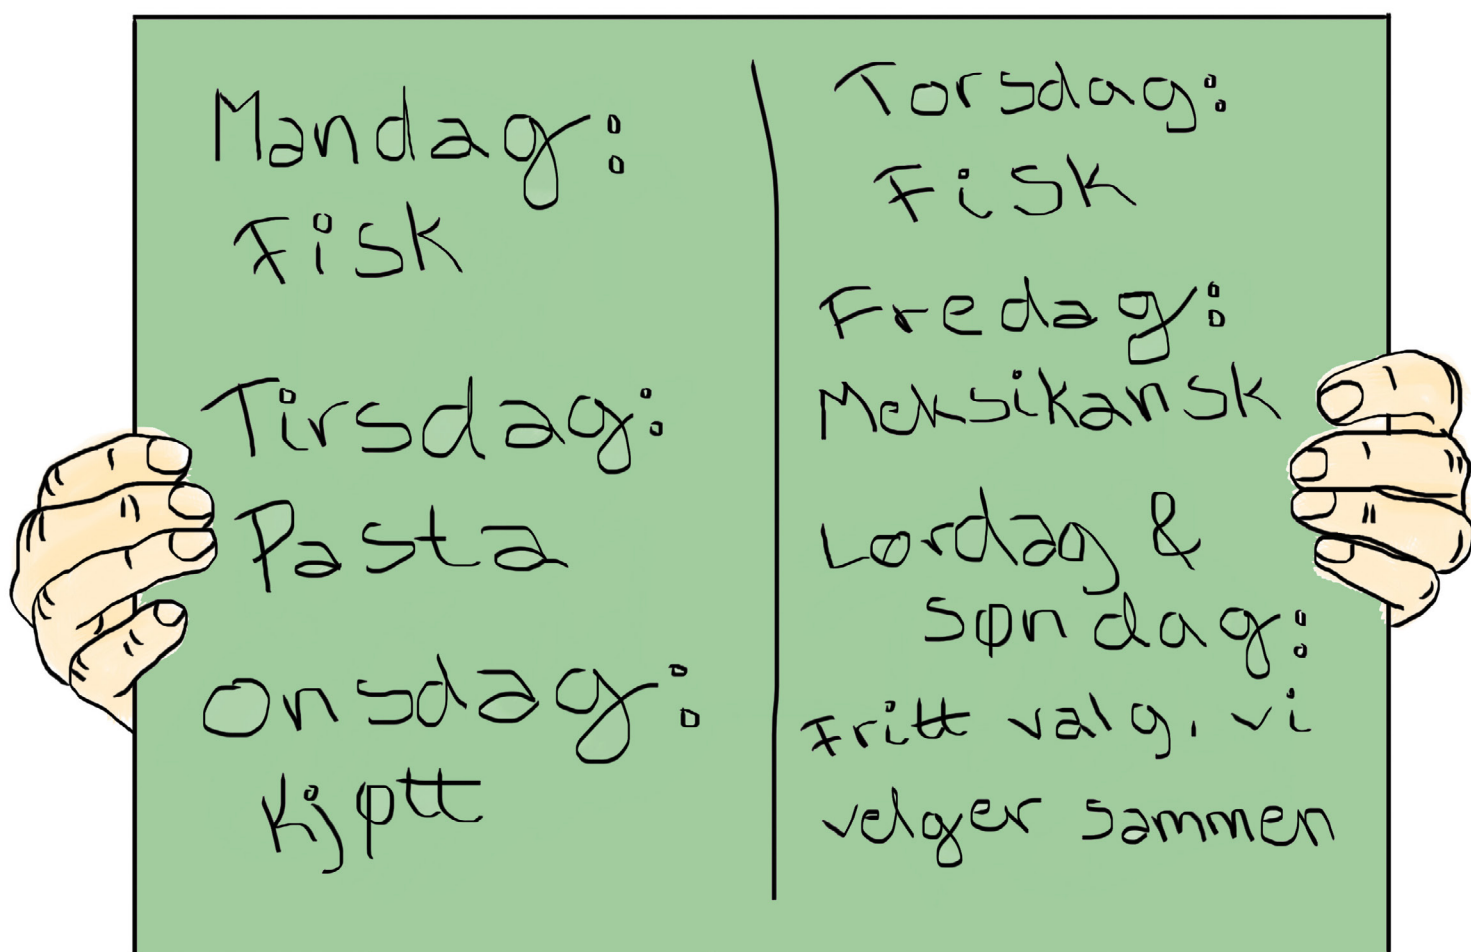 Mandag:
Fisk
Tirsdag:
Pasta
Onsdag:
Kjøtt
Torsdag:
Fisk
Fredag:
Meksikansk
Lørdag &
søndag:
Fritt valg, vi
velger sammen